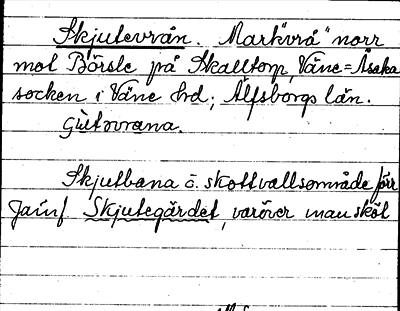 Skjutevrån. Mark"vrå" norr
mot Börsle på Skalltorp, Väne=Åsaka
socken i Väne hrd; Älfsborgs län.
Skjutbana o. skottvallsområde förr
Jämf Skjutegärdet, varöver man sköt